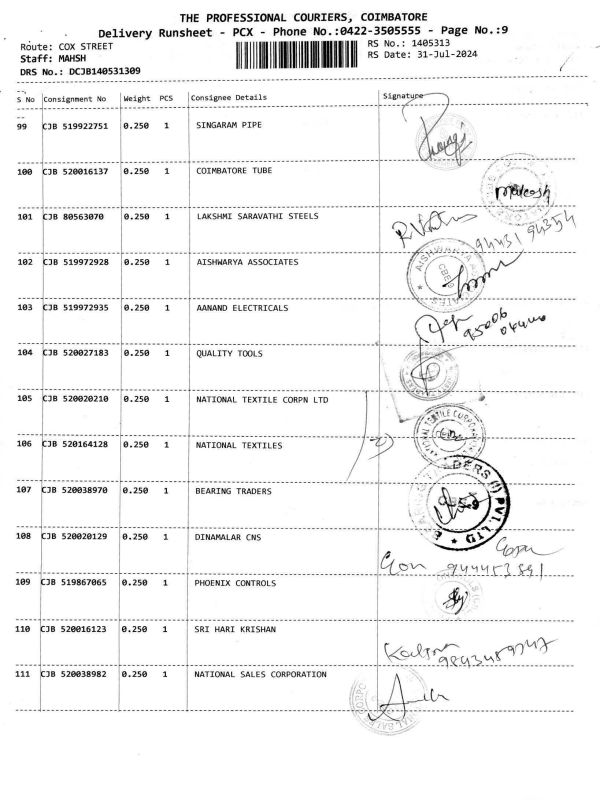 THE PROFESSIONAL COURIERS, COIMBATORE
Delivery Runsheet - PCX - Phone No.:0422-3505555 - Page No.:9
Route: COX STREET
RS No.: 1405313
Staff: MAHSH
RS Date: 31-Jul-2024
DRS No.: DCJB140531309
S No Consignment No Weight PCS Consignee Details Signature
99 CJB 519922751 0.250 1 SINGARAM PIPE
100 CJB 520016137 0.250 1 COIMBATORE TUBE
101 CJB 80563070 0.250 1 LAKSHMI SARAVATHI STEELS
94431 94354
102 CJB 519972928 0.250 1 AISHWARYA ASSOCIATES
103 CJB 519972935 0.250 1 AANAND ELECTRICALS
95006
104 CJB 520027183 0.250 1 QUALITY TOOLS
105 CJB 520020210 0.250 1 NATIONAL TEXTILE CORPN LTD
106 CJB 520164128 0.250 1 NATIONAL TEXTILES
107 CJB 520038970 0.250 1 BEARING TRADERS
108 CJB 520020129 0.250 1 DINAMALAR CNS
109 CJB 519867065 0.250 1 PHOENIX CONTROLS
110 CJB 520016123 0.250 1 SRI HARI KRISHAN
111 CJB 520038982 0.250 1 NATIONAL SALES CORPORATION